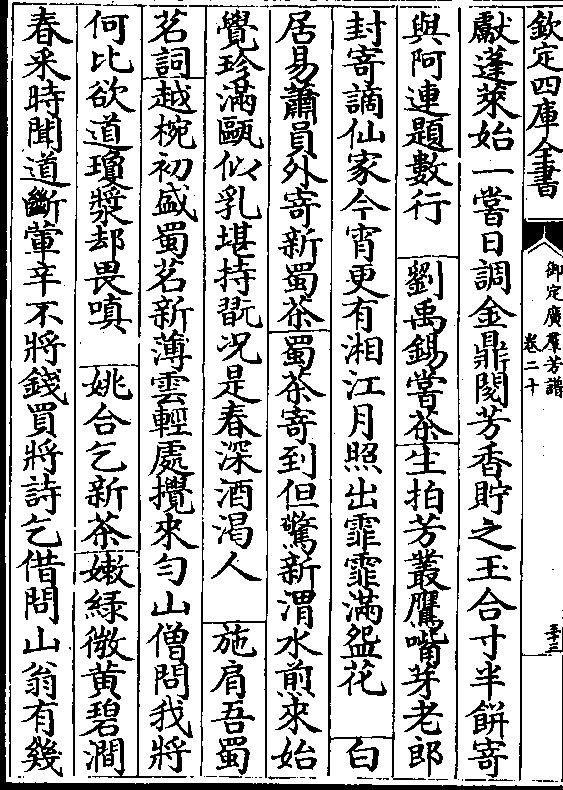 欽定四庫全書
御定廣羣芳譜
卷二十
三十三
獻蓬萊始一嘗日調金鼎閱芳香貯之玉合寸半餅寄
與阿連題數行 劉禹錫嘗茶生拍芳叢鷹嘴芽老郎
封寄謫仙家今宵更有湘江月照出霏霏滿盌花 白
居易蕭員外寄新蜀茶蜀茶寄到但驚新渭水煎來始
覺珍滿甌似乳堪持翫况是春深酒渴人 施肩吾蜀
茗詞越椀初盛蜀茗新薄雲輕處攪來勻山僧問我將
何比欲道瓊漿却畏嗔 姚合乞新茶嫩綠微黃碧澗
春采時聞道斷葷辛不將錢買將詩乞借問山翁有幾